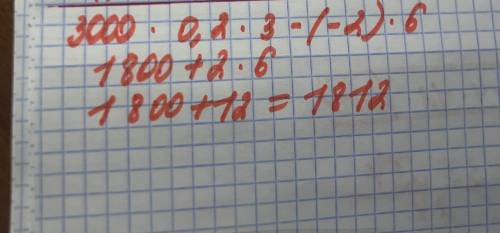 3000 · 0,2 · 3 - (-2) · 6
1800 + 2 · 6
1800 + 12 = 1812